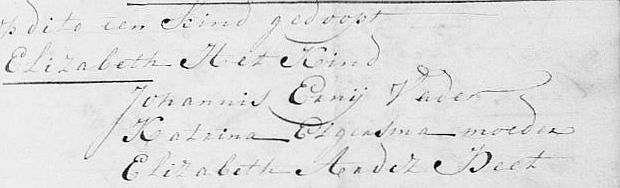 op dito een kind gedoopt
Elizabeth Het Kind
Johannis Ernij Vader
Katrina Elgersma moeder
Elizabeth Peet